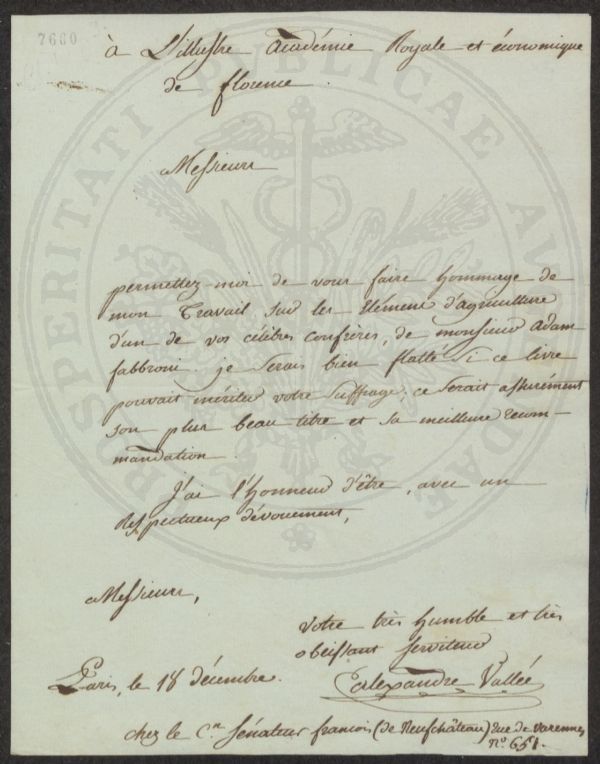 7660
à L'illustre Académie Royale et économique
de florence.
Messieurs
permettez-moi de vous faire hommage de
mon Travail sur les Elémens d'agriculture
d'un de vos célèbres confrères, de monsieur adam
fabbroni. je serais bien flatté si ce livre
pouvait mériter votre suffrage; ce serait assurément
son plus beau titre et sa meilleure recom-
mandation.
J'ai l'honneur d'être, avec un
Respectueux dévouement,
Messieurs,
votre très humble et très
obéissant serviteur
Alexandre Vallée
Paris, le 18 décembre.
chez le C.en Sénateur françois (de Neufchâteau) rue de varennes
n.o 651.
PROSPERITATI PUBLICAE AUGENDAE